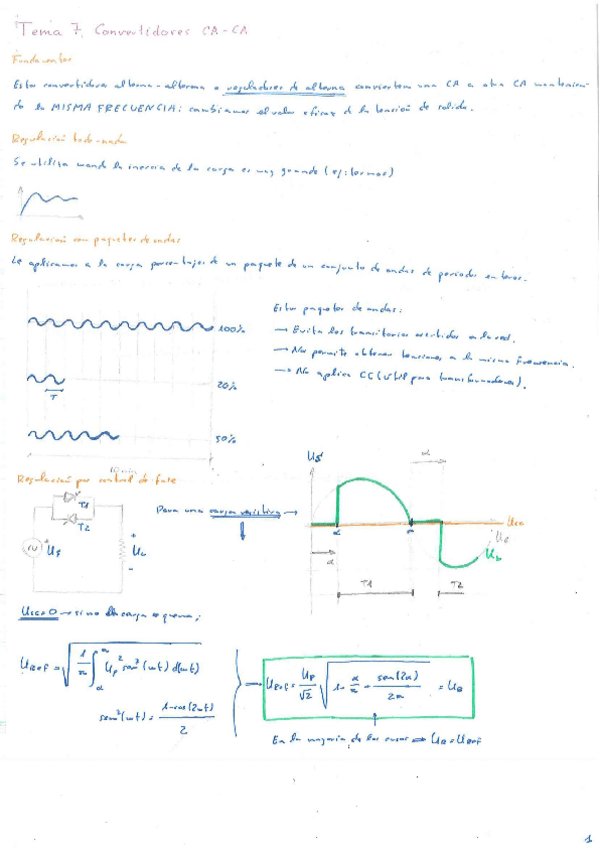 Tema 7. Convertidores CA-CA
Fundamentos
Estos convertidores alterna-alterna o reguladores de alterna convierten una CA a otra CA mantenien-
do la MISMA FRECUENCIA: cambiamos el valor eficaz de la tensión de salida.
Regulación todo-nada
Se utiliza cuando la inercia de la carga es muy grande (ej: termos)
Regulación con paquetes de ondas
Le aplicamos a la carga porcentajes de un paquete de un conjunto de ondas de periodos enteros.
Estos paquetes de ondas:
100%
→ Evita los transitorios en la red.
→ Nos permite obtener tensiones a la misma frecuencia.
→ No aplica CC (útil para transformadores).
20%
T
50%
Regulación por control de fase
T1
T2
US
+
UL
-
Para una carga resistiva →
US
α
α
π
α
T1
T2
US
UL
UCC=0
URef = √(1/π ∫απ Up² sen²(wt) d(wt))
sen²(wt) = (1-cos(2wt))/2
→ URef = Up/√2 √(1 - α/π + sen(2α)/2π) = UR
En la mayoría de los casos ⇒ UR = URef
1